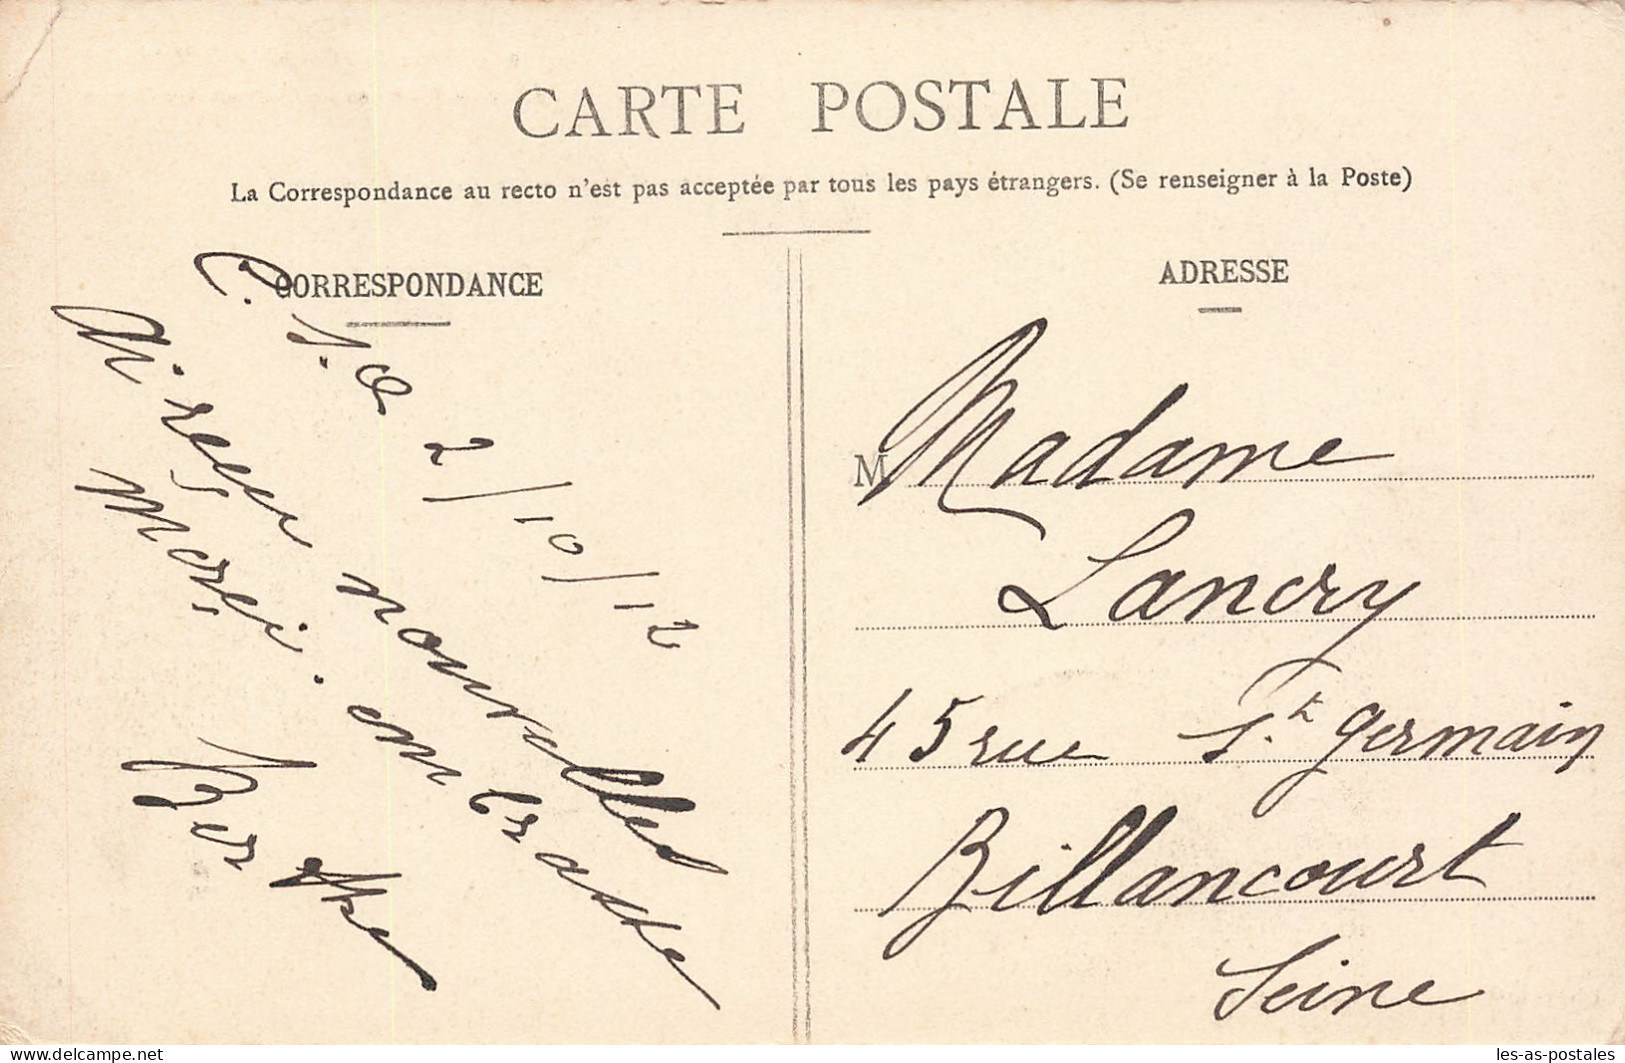 CARTE POSTALE
La Correspondance au recto n'est pas acceptée par tous les pays étrangers. (Se renseigner à la Poste)
CORRESPONDANCE
2/10/12
Ai reçu nouvelles
Merci. embrasse
Berthe
ADRESSE
M Madame
Lancry
45 rue St germain
Billancourt
Seine
www.delcampe.net
les-as-postales